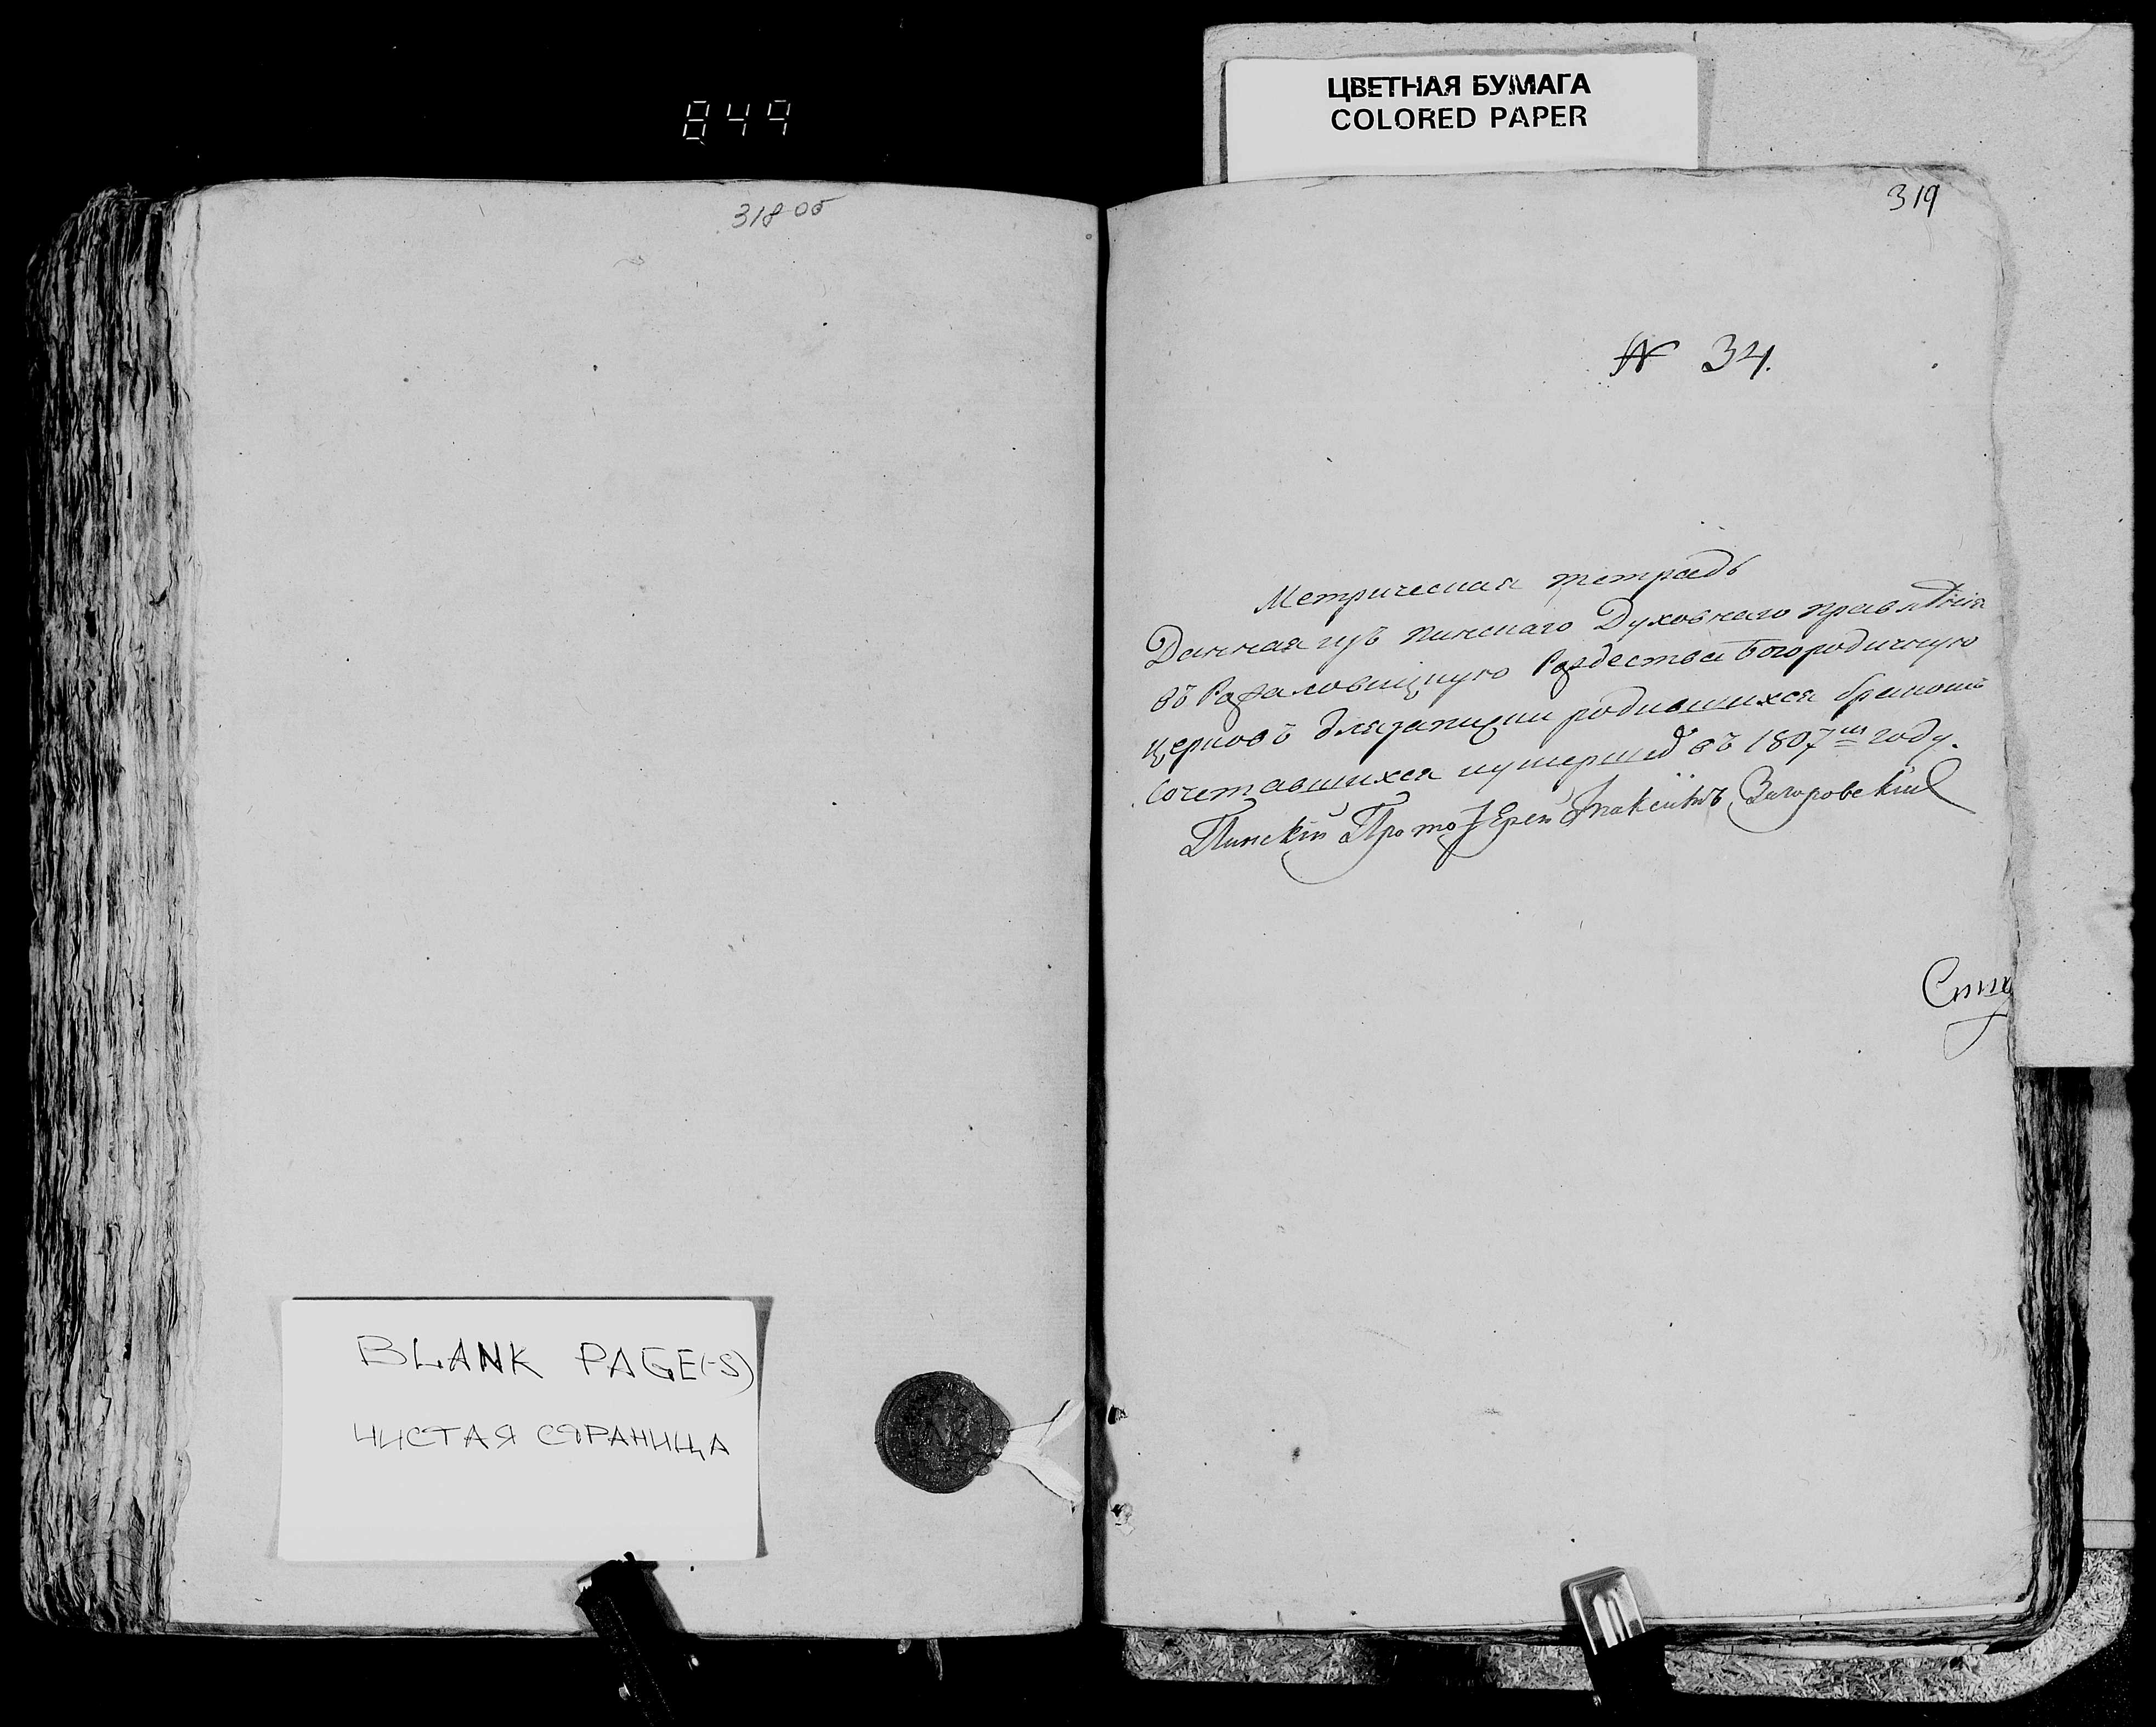 849
ЦВЕТНАЯ БУМАГА
COLORED PAPER
318 об
319
№ 34.
Метрическая тетрадь
Данная изъ пинскаго Духовнаго правлѣнія
въ Рафаловицкую Рождества Богородичную
церковъ для записки родившихся бракомъ
сочетавшихся и умершихъ въ 1807мъ году.
Пинскій ПротоІерей Загоровскій
BLANK PAGE(-S)
ЧИСТАЯ СТРАНИЦА